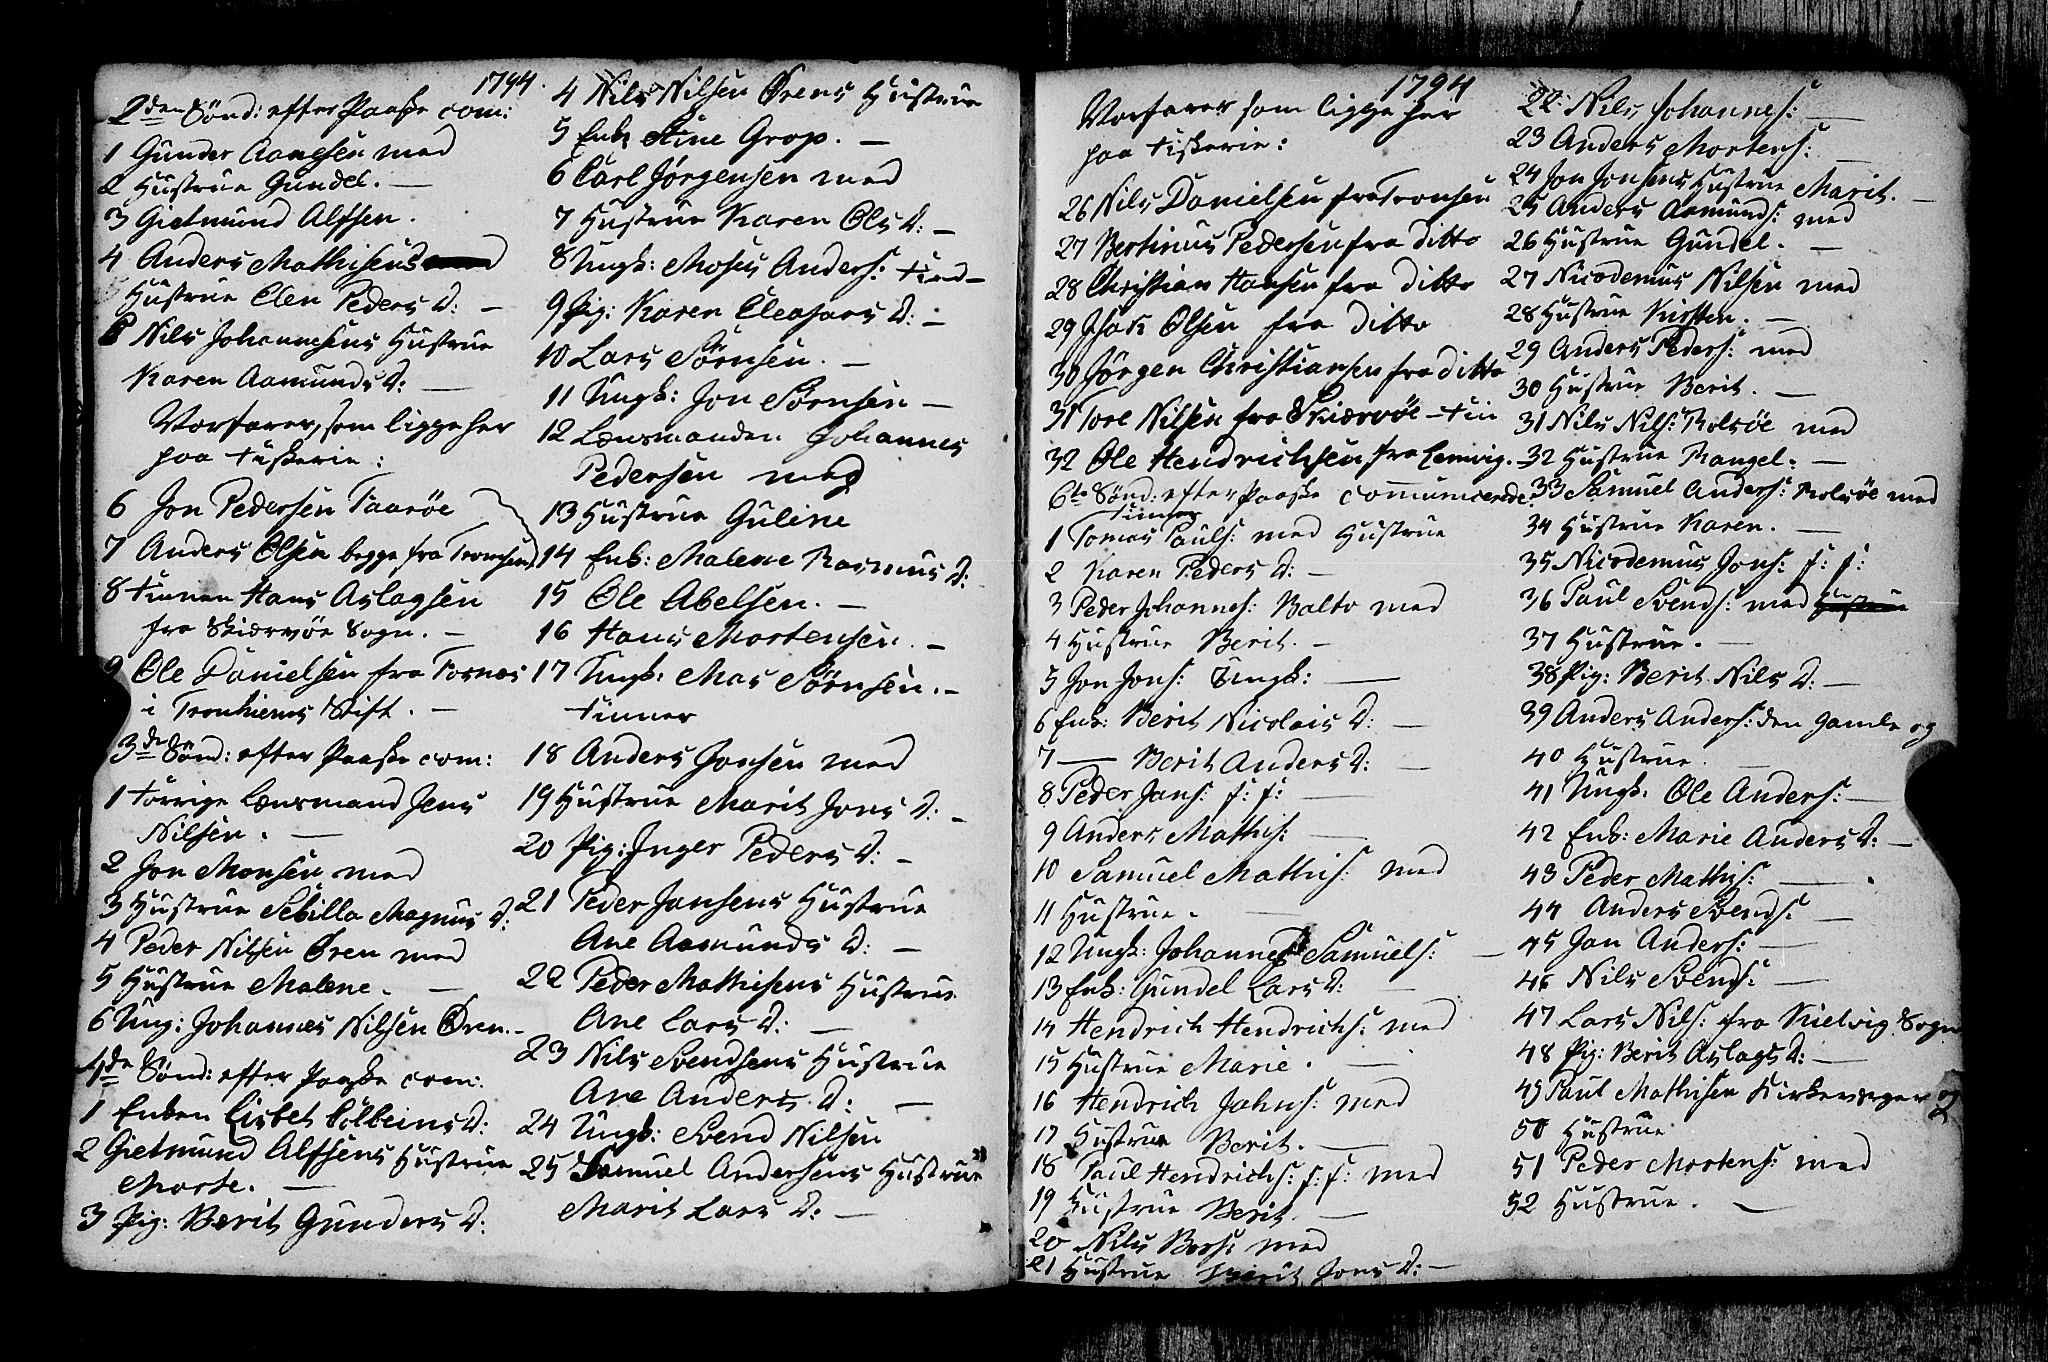 1794.
2den Sønd: efter Paaske com:
1 Gunder Aanesen med
2 Hustrue Gundel. —
3 Gietmund Alfsen.
4 Anders Mathisens
Hustrue Elen Peders D: —
5 Nils Johannesens Hustrue
Karen Aamunds D: —
Vorfarer, som ligge her
paa Fiskerie:
6 Jon Pedersen Taarøe
7 Anders Olsen begge fra Tromsen
8 Finnen Hans Aslagsen
fra Skiærvøe Sogn. —
9 Ole Danielsen fra Fosnæs
i Tronhiems Stift. —
3de Sønd: efter Paaske com:
1 Forrige Lænsmand Jens
Nilsen. —
2 Jon Monsen med
3 Hustrue Sebilla Magnus D:
4 Peder Nilsen Øren med
5 Hustrue Malene. —
6 Ung: Johannes Nilsen Øren. -
4de Sønd: efter Paaske com:
1 Enken Lisbet Colbeins D:
2 Gietmund Alfsens Hustrue
Marte. —
3 Pig: Berit Gunders D:
4 Nils Nilsen Ørens Hustrue
5 Enk Stine Grop. —
6 Carl Jørgensen med
7 Hustrue Karen Ols D: —
8 Ungk: Moses Anders:
9 Pig: Karen Eleasars D: —
10 Lars Sørnsen. —
11 Ungk: Jon Sørnsen —
12 Lænsmanden Johannes
Pedersen med
13 Hustrue Guline
14 Enk: Malene Rasmus D:
15 Ole Abelsen. —
16 Hans Mortensen. —
17 Ungk: Mas Sørnsen. —
Finner
18 Anders Jonsen med
19 Hustrue Marit Jons D: —
20 Pig: Inger Peders D: —
21 Peder Jansens Hustrue
Ane Aamunds D: —
22 Peder Mathisens Hustrue
Ane Lars D: —
23 Nils Svendsens Hustrue
Ane Anders D: —
24 Ungk: Svend Nilsen
25 Samuel Andersens Hustrue
Marit Lars D: —
1794
Vorfarer som ligge her
paa Fiskerie:
26 Nils Danielsen fra Tromsen
27 Bertinus Pedersen fra ditto
28 Christian Hansen fra ditto
29 Isak Olsen fra ditto
30 Jørgen Christiansen fra ditto
31 Tore Nilsen fra Skiærvøe - Fin
32 Ole Hendrichsen fra Lenvig. —
6te Sønd: efter Paaske communicerede
Finner
1 Tomas Pauls: med Hustrue
2 Karen Peders D: —
3 Peder Johannes: Balto med
4 Hustrue Berit. —
5 Jon Jons: Ungk: —
6 Enk: Berit Nicolais D: —
7 — Berit Anders D: —
8 Peder Jans: f: f: —
9 Anders Mathis: —
10 Samuel Mathis: med
11 Hustrue. —
12 Ungk: Johannes Samuels: —
13 Enk: Gundel Lars D: —
14 Hendrich Hendrichs: med
15 Hustrue Marie. —
16 Hendrich Johns: med
17 Hustrue Berit. —
18 Paul Hendrichs: f: f: med
19 Hustrue Berit. —
20 Nils Bers: med
21 Hustrue Marit Jons D: —
22: Nils Johannes: —
23 Anders Mortens: —
24 Jon Jonsens Hustrue Marit. —
25 Anders Aamunds: med
26 Hustrue Gundel. —
27 Nicodemus Nilsen med
28 Hustrue Kirsten. —
29 Anders Peders: med
30 Hustrue Berit. —
31 Nils Nils: Rolsøe med
32 Hustrue Rangel: —
33 Samuel Anders: Rolsøe med
34 Hustrue Karen. —
35 Nicodemus Jons: f: f:
36 Paul Svends: med Hustrue
37 Hustrue. —
38 Pig: Berit Nils D: —
39 Anders Anders: den gamle og
40 Hustrue. —
41 Ungk. Ole Anders: —
42 Enk: Marie Anders D: —
43 Peder Mathis: —
44 Anders Svends: —
45 Jon Anders: —
46 Nils Svends: —
47 Lars Nils: fra Kielvig Sogn
48 Pig: Berit Aslags D: —
49 Paul Mathisen Kirkeværger og
50 Hustrue
51 Peder Mortens: med
52 Hustrue. —